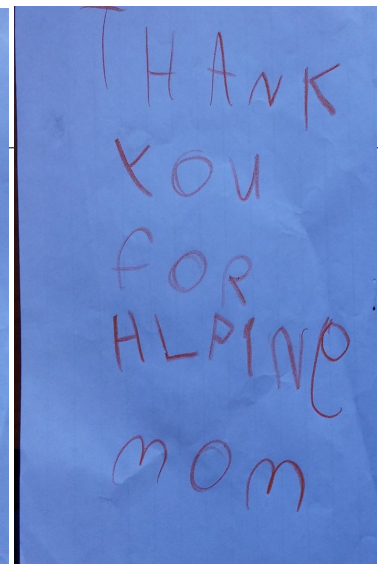 THANK
YOU
FOR
HLPINg
mom